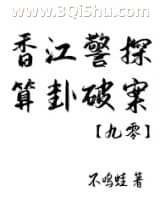 www.3Qishu.com
香江警探
算卦破案
【九零】
不鸣蛙 著